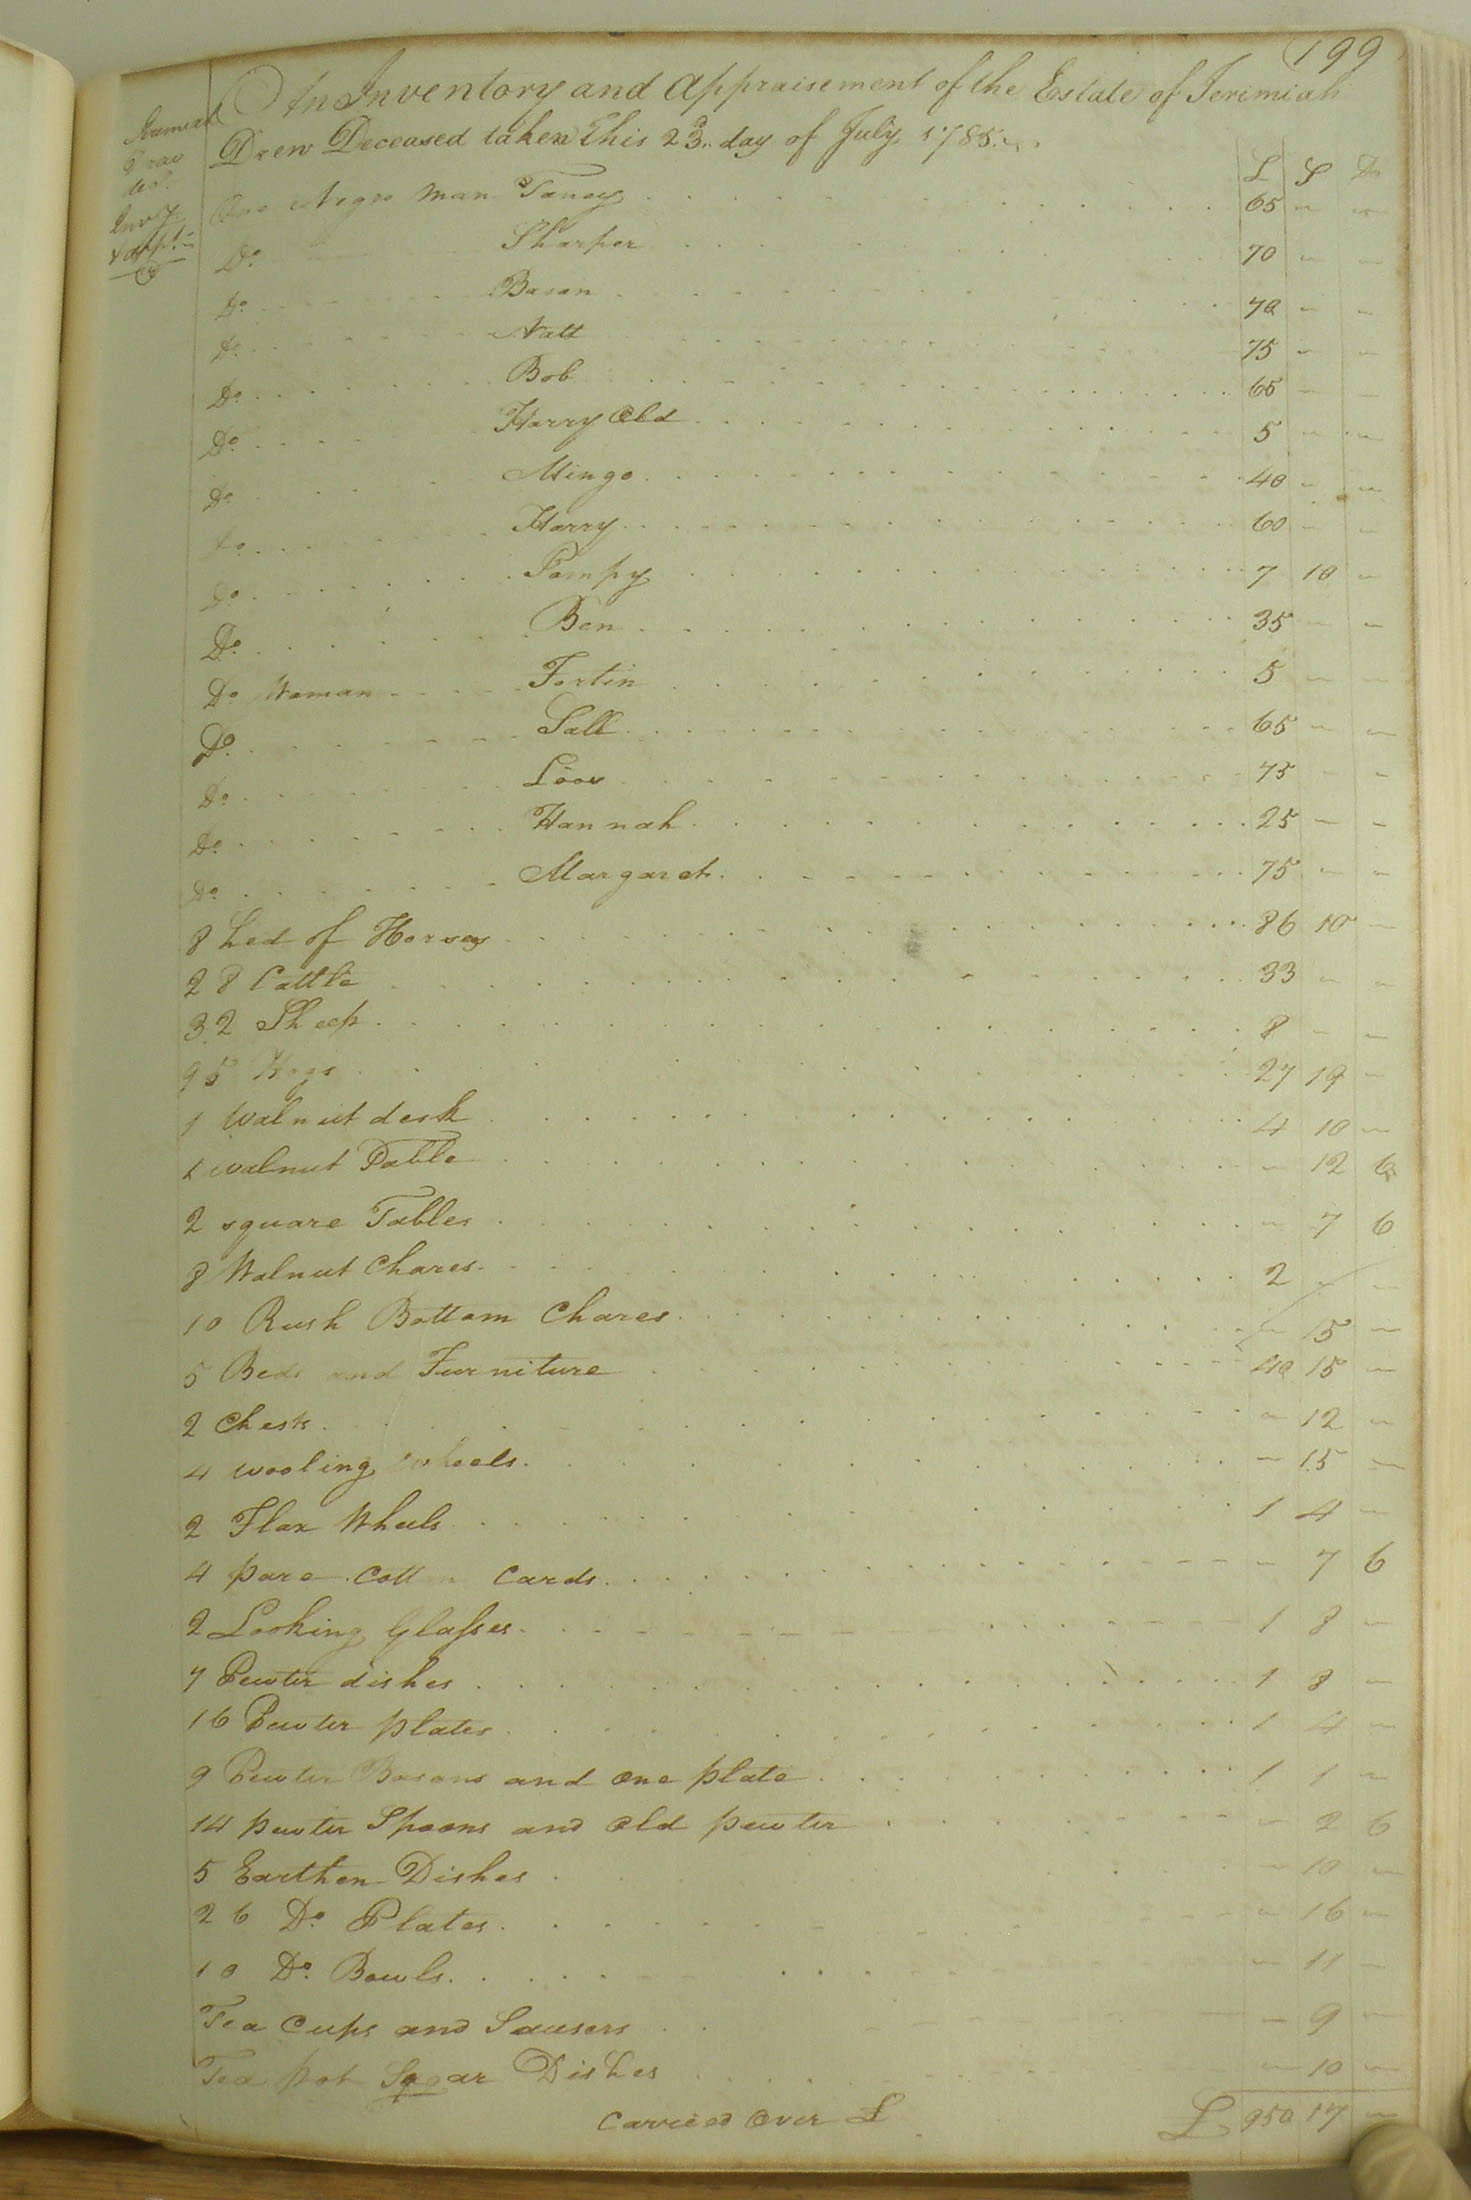 199
An Inventory and Appraisement of the Estate of Jerimiah
Drew Deceased taken This 23d. day of July 1785
Invy
& appt
£ S
One Negro man Tancy 65 - -
Do. Sharper 70 - -
Do. Bason 70 - -
Do. Natt 75 - -
Do. Bob 65 - -
Do. Harry Old 5 - -
Do. Mingo 40 - -
Do. Harry 60 - -
Do. Pompy 7 10 -
Do. Ben 35 - -
Do Woman Fortin 5 - -
Do. Sall 65 - -
Do. 75 - -
Do. Hannah 25 - -
Do. Margaret 75 - -
8 hed of Horses 86 10 -
28 Cattle 33 - -
32 Sheep 8 - -
95 Hogs 27 19 -
1 Walnut desk 4 10 -
1 walnut Table - 12 6
2 square Tables - 7 6
8 Walnut Chares 2 - -
10 Rush Bottom Chares - 15 -
5 Beds and Furniture 40 15 -
2 Chests - 12 -
4 wooling wheels - 15 -
2 Flax Wheels 1 4 -
4 pare Cotton Cards - 7 6
2 Looking Glasses 1 8 -
7 Pewter dishes 1 8 -
16 Pewter plates 1 4 -
9 Pewter Basons and one plate 1 1 -
14 pewter Spoons and old pewter - 2 6
5 Earthen Dishes - 10 -
26 Do. Plates - 16 -
10 Do. Bowls - 11 -
Tea Cups and Sausers - 9 -
Tea pot Sugar Dishes - 10 -
Carried Over £ £ 950 17 -